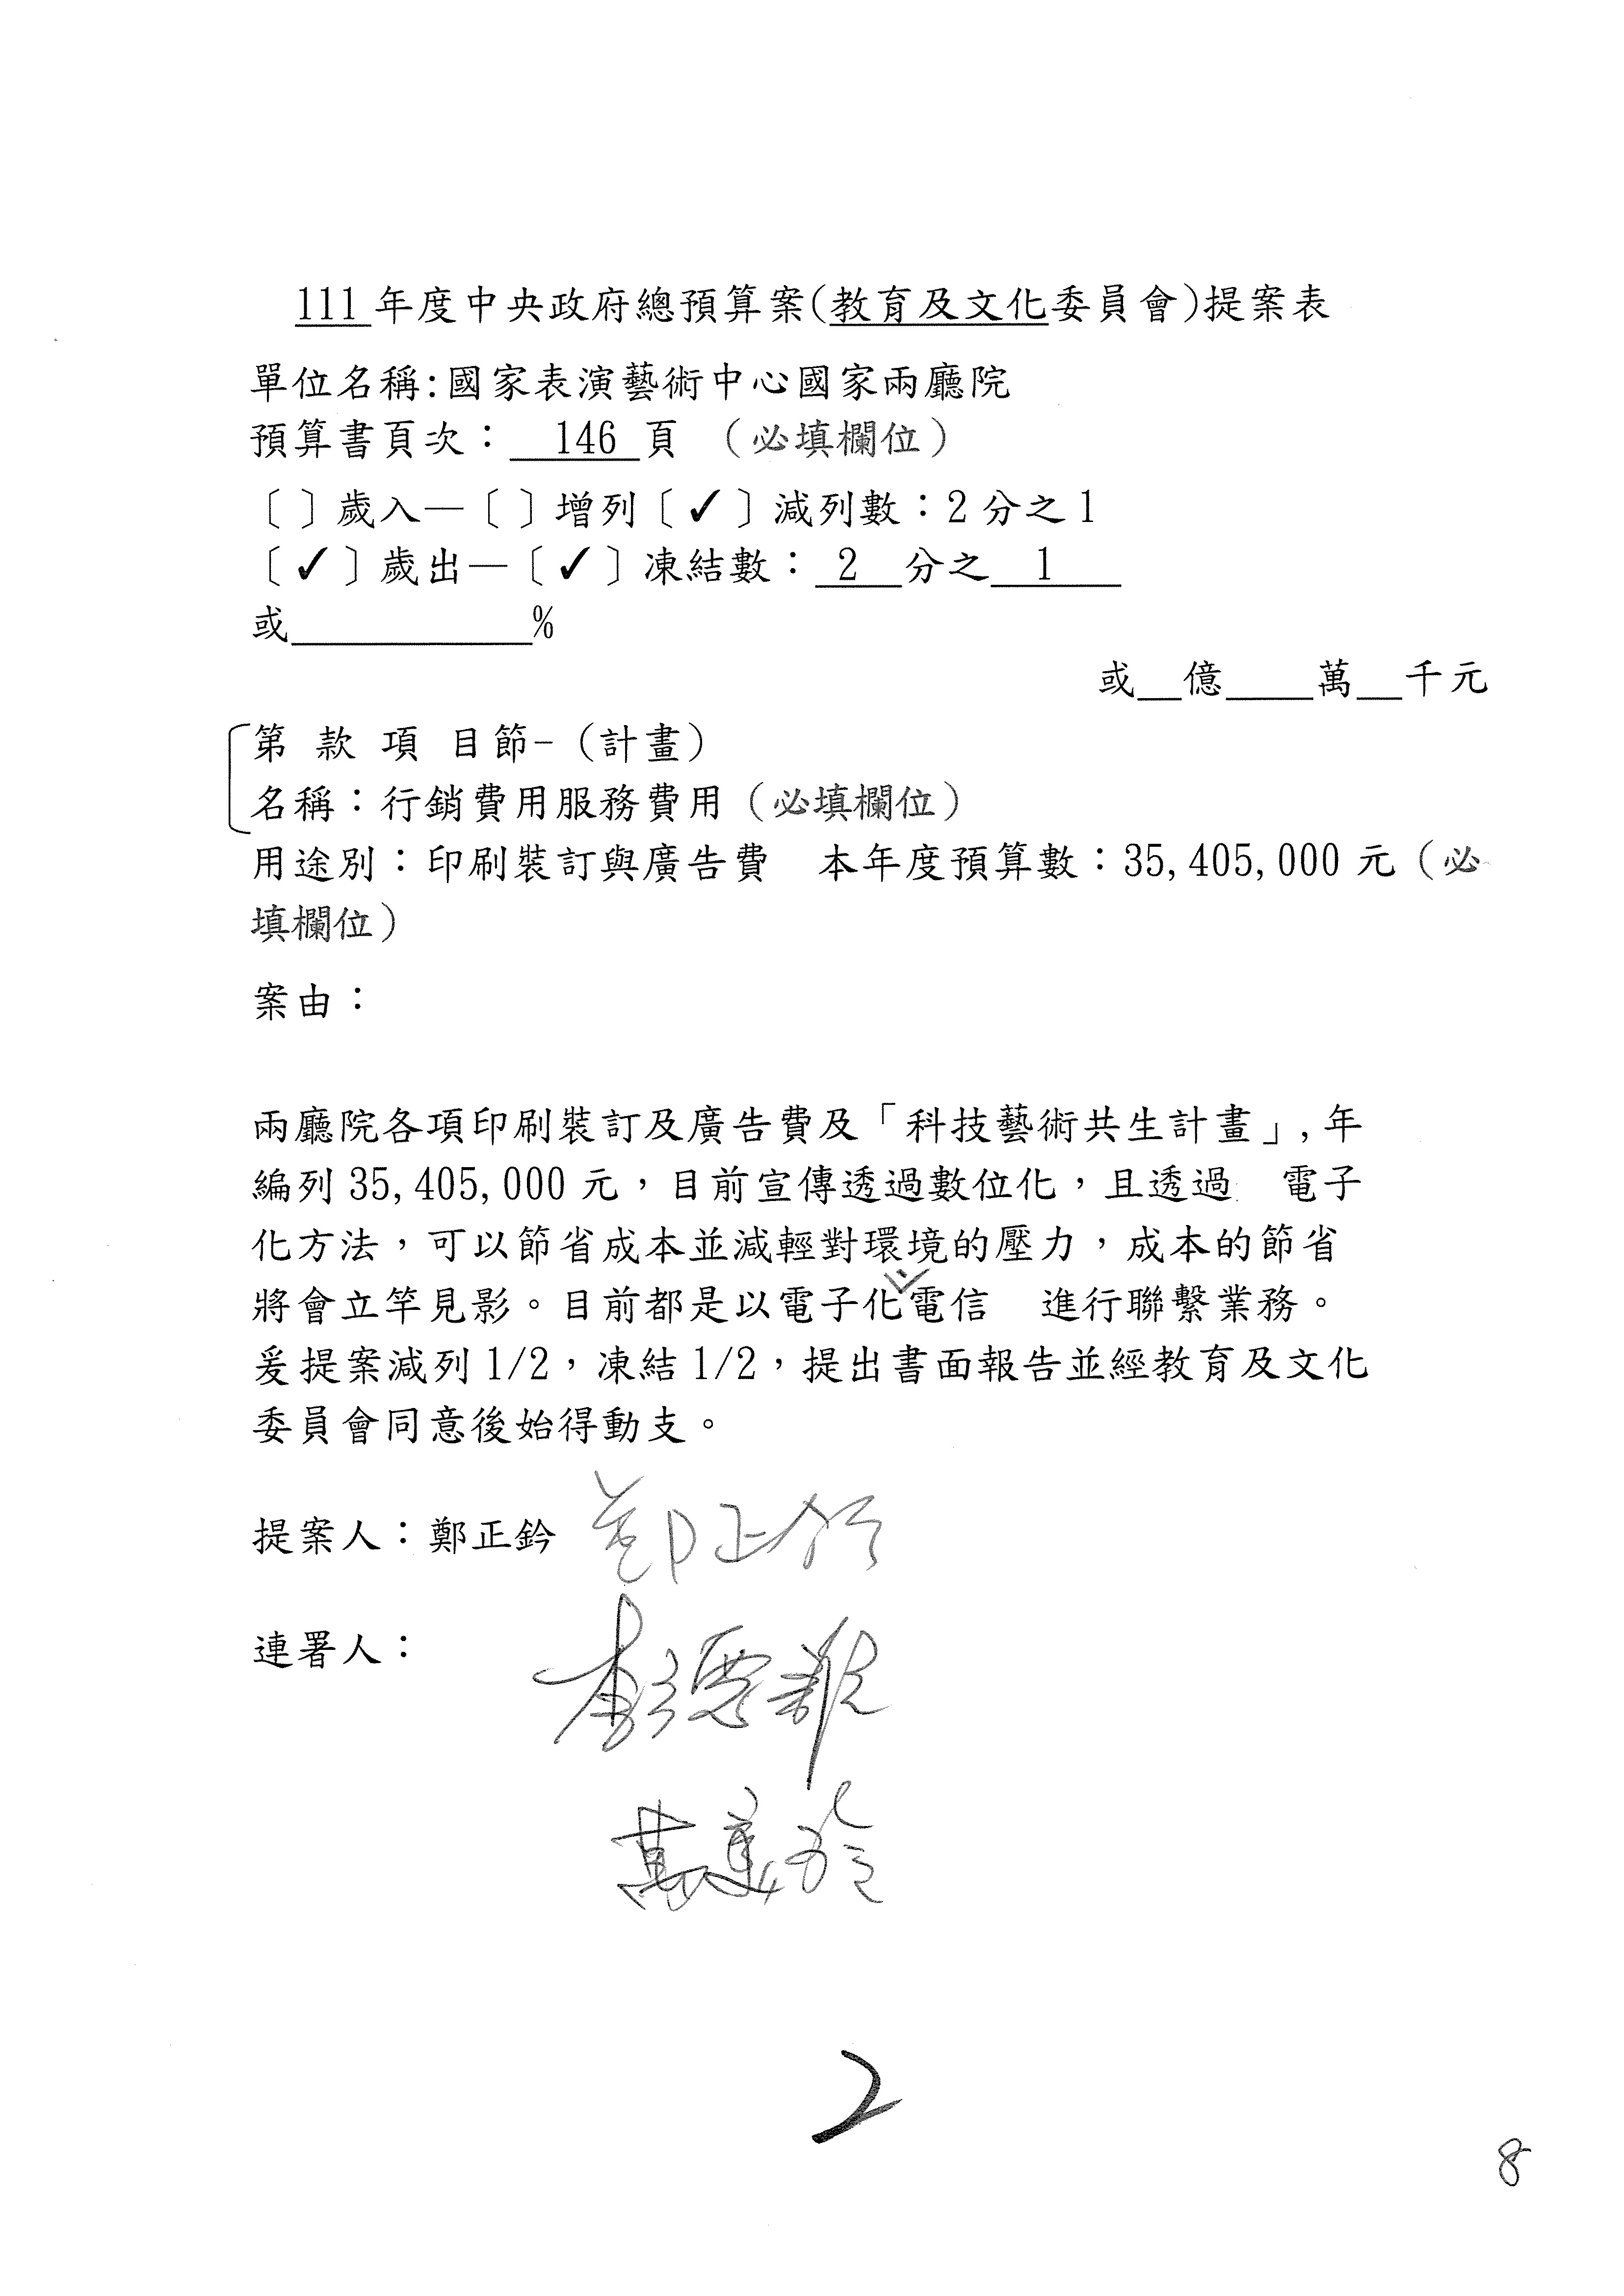 111年度中央政府總預算案(教育及文化委員會)提案表
單位名稱:國家表演藝術中心國家兩廳院
預算書頁次：146頁（必填欄位）
〔 〕歲入—〔 〕增列〔✓〕減列數：2分之1
〔✓〕歲出—〔✓〕凍結數：2分之1
或____%
或__億____萬__千元
第 款 項 目節-（計畫）
名稱：行銷費用服務費用（必填欄位）
用途別：印刷裝訂與廣告費 本年度預算數：35,405,000元（必
填欄位）
案由：
兩廳院各項印刷裝訂及廣告費及「科技藝術共生計畫」,年
編列35,405,000元，目前宣傳透過數位化，且透過 電子
化方法，可以節省成本並減輕對環境的壓力，成本的節省
將會立竿見影。目前都是以電子化電信 進行聯繫業務。
爰提案減列1/2，凍結1/2，提出書面報告並經教育及文化
委員會同意後始得動支。
提案人：鄭正鈐 鄭正鈐
連署人：
萬美玲
2
8